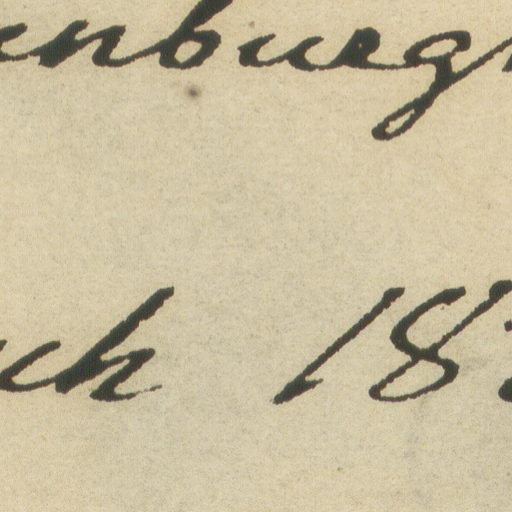 enburg
ch 18